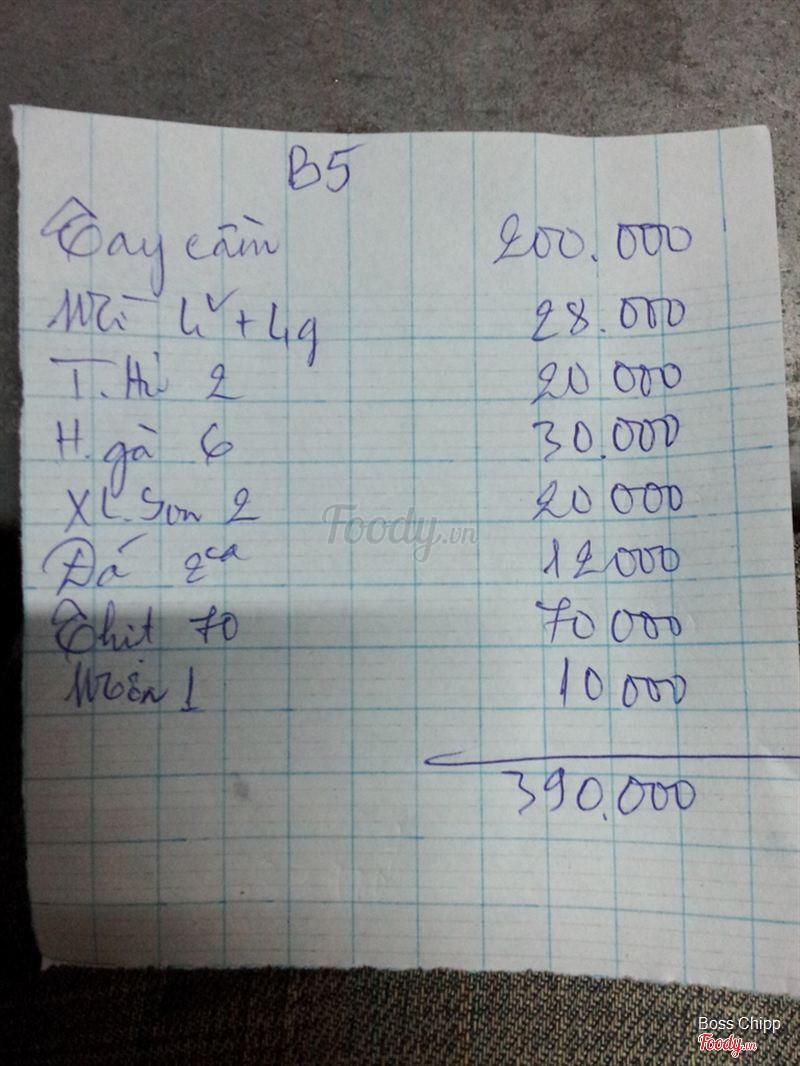 B5
Tay cầm 200.000
Mì 4v + 4g 28.000
T. Hủ 2 20 000
H. gà 6 30.000
XL. Son 2 20 000
Foody.vn
Đá 2ca 12 000
Thịt 70 70 000
Miến 1 10 000
390.000
Boss Chipp
Foody.vn